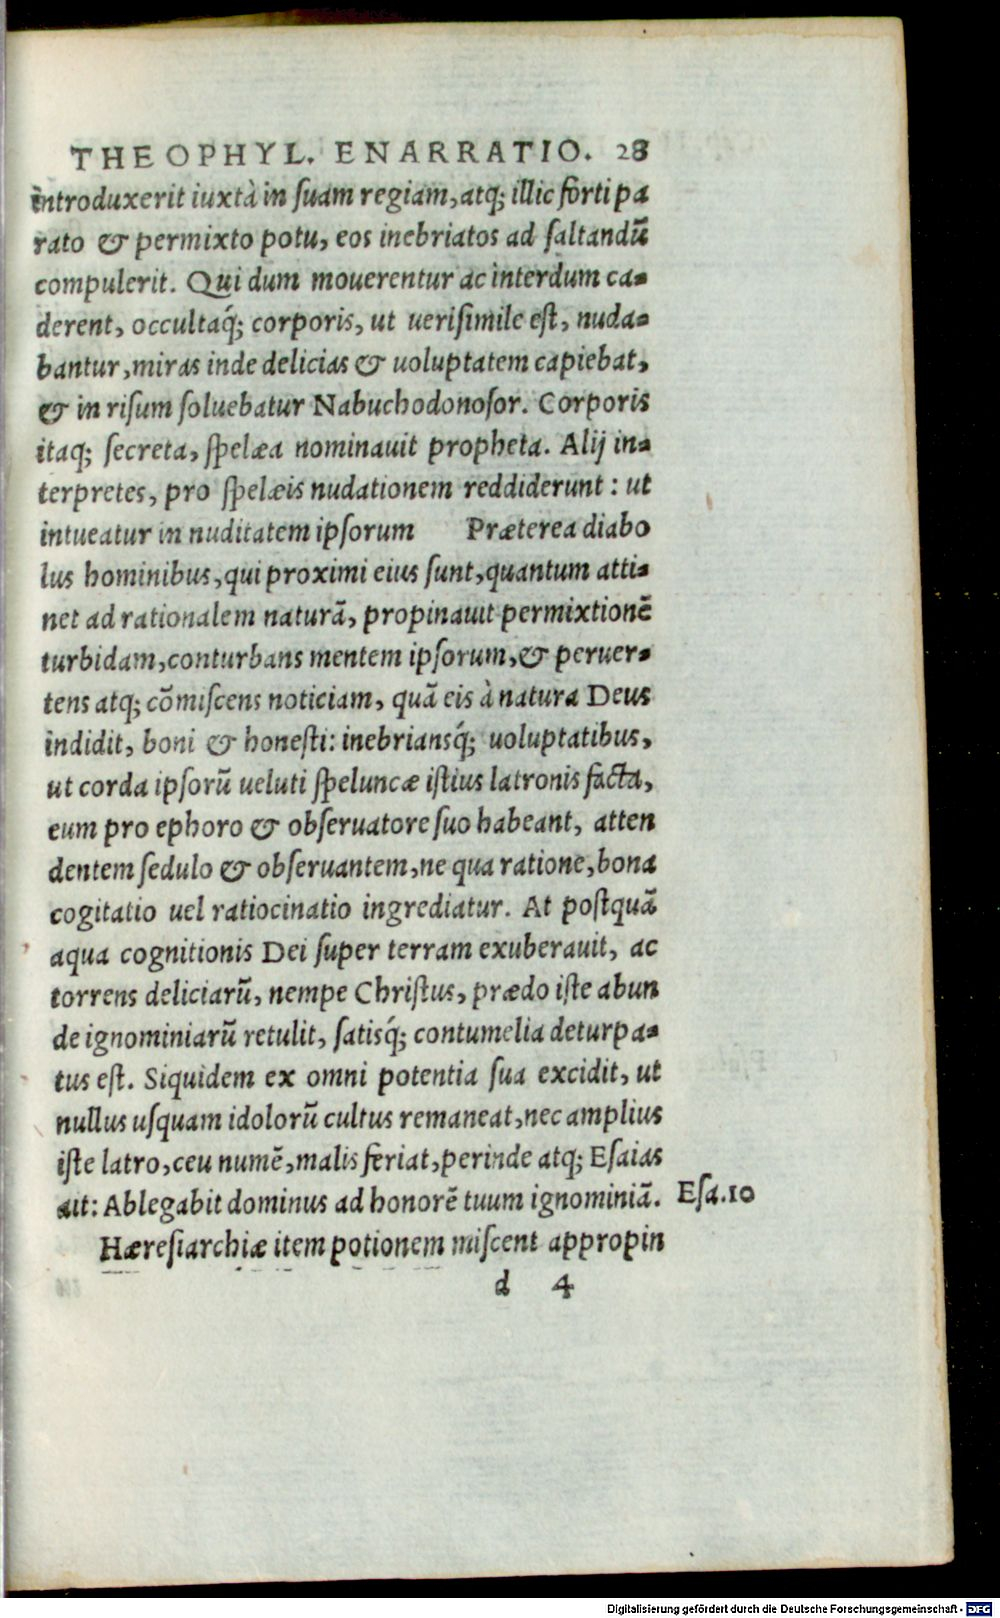 THEOPHYL. ENARRATIO. 28
introduxerit iuxtà in ſuam regiam, atq; illic forti pa
rato & permixto potu, eos inebriatos ad ſaltandū
compulerit. Qui dum mouerentur ac interdum ca-
derent, occultaq́; corporis, ut ueriſimile eſt, nuda-
bantur, miras inde delicias & uoluptatem capiebat,
& in riſum ſoluebatur Nabuchodonoſor. Corporis
itaq; ſecreta, ſpelæa nominauit propheta. Alij in-
terpretes, pro ſpelæis nudationem reddiderunt: ut
intueatur in nuditatem ipſorum Præterea diabo
lus hominibus, qui proximi eius ſunt, quantum atti-
net ad rationalem naturā, propinauit permixtionē
turbidam, conturbans mentem ipſorum, & peruer-
tens atq; cōmiſcens noticiam, quā eis à natura Deus
indidit, boni & honeſti: inebriansq́; uoluptatibus,
ut corda ipſorū ueluti ſpeluncæ iſtius latronis facta,
eum pro ephoro & obſeruatore ſuo habeant, atten
dentem ſedulo & obſeruantem, ne qua ratione, bona
cogitatio uel ratiocinatio ingrediatur. At poſtquā
aqua cognitionis Dei ſuper terram exuberauit, ac
torrens deliciarū, nempe Chriſtus, prædo iſte abun
de ignominiarū retulit, ſatisq́; contumelia deturpa-
tus eſt. Siquidem ex omni potentia ſua excidit, ut
nullus uſquam idolorū cultus remaneat, nec amplius
iſte latro, ceu numē, malis feriat, perinde atq; Eſaias
ait: Ablegabit dominus ad honorē tuum ignominiā. Eſa.10
Hæreſiarchiæ item potionem miſcent appropin
d 4
Digitalisierung gefördert durch die Deutsche Forschungsgemeinschaft - DFG